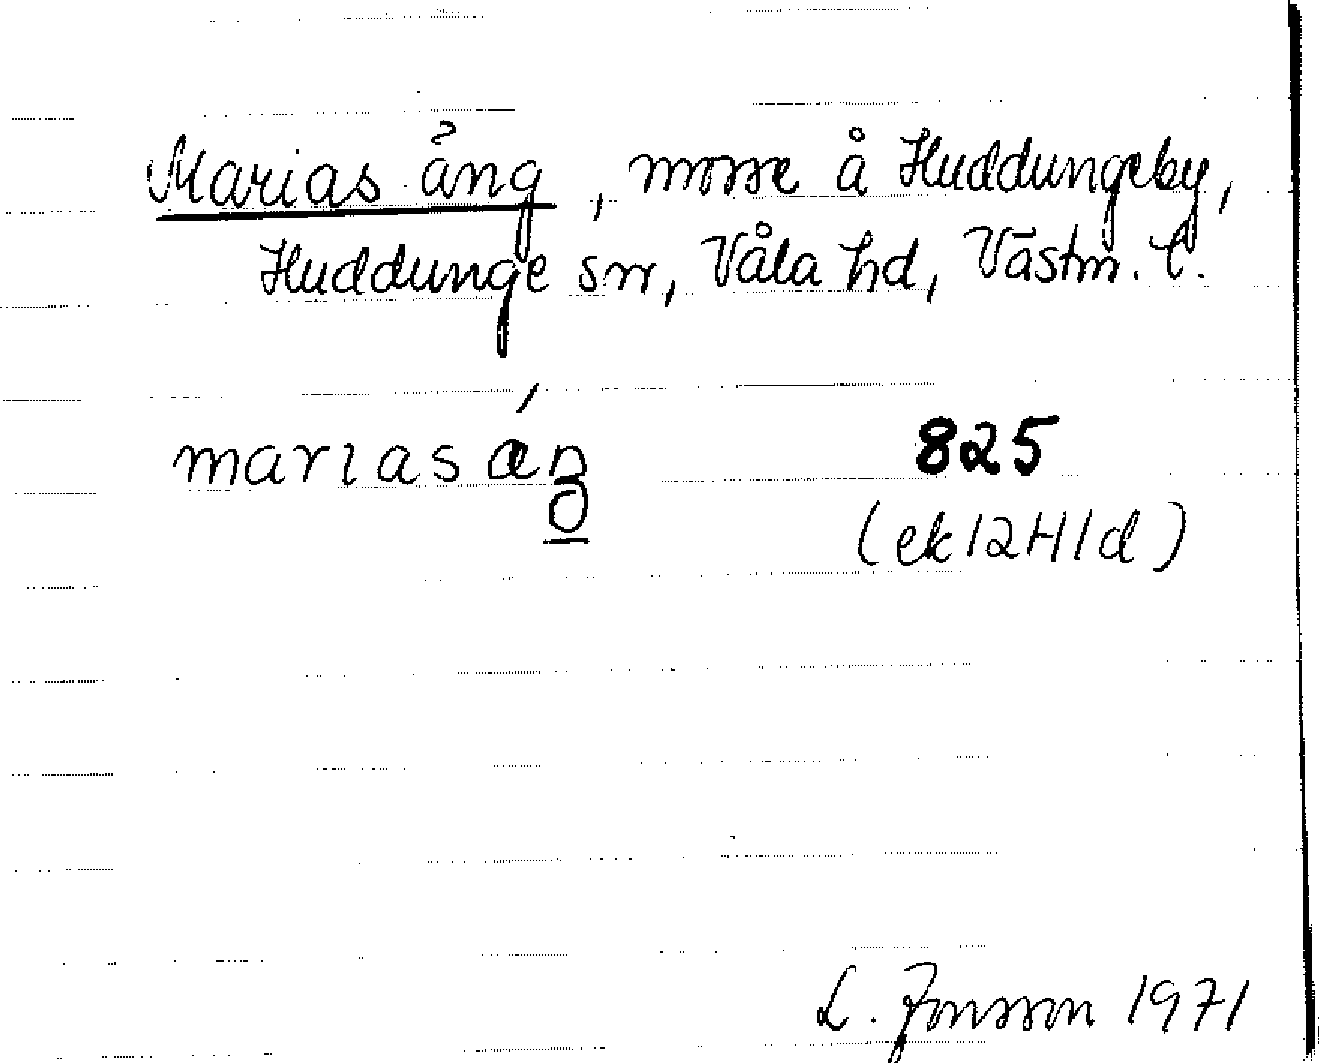 Marias äng, mosse å Huddungeby,
Huddunge sn, Våla hd, Västm. l.
marias äŋ
825
(ek 12H1d)
L. Jonsson 1971